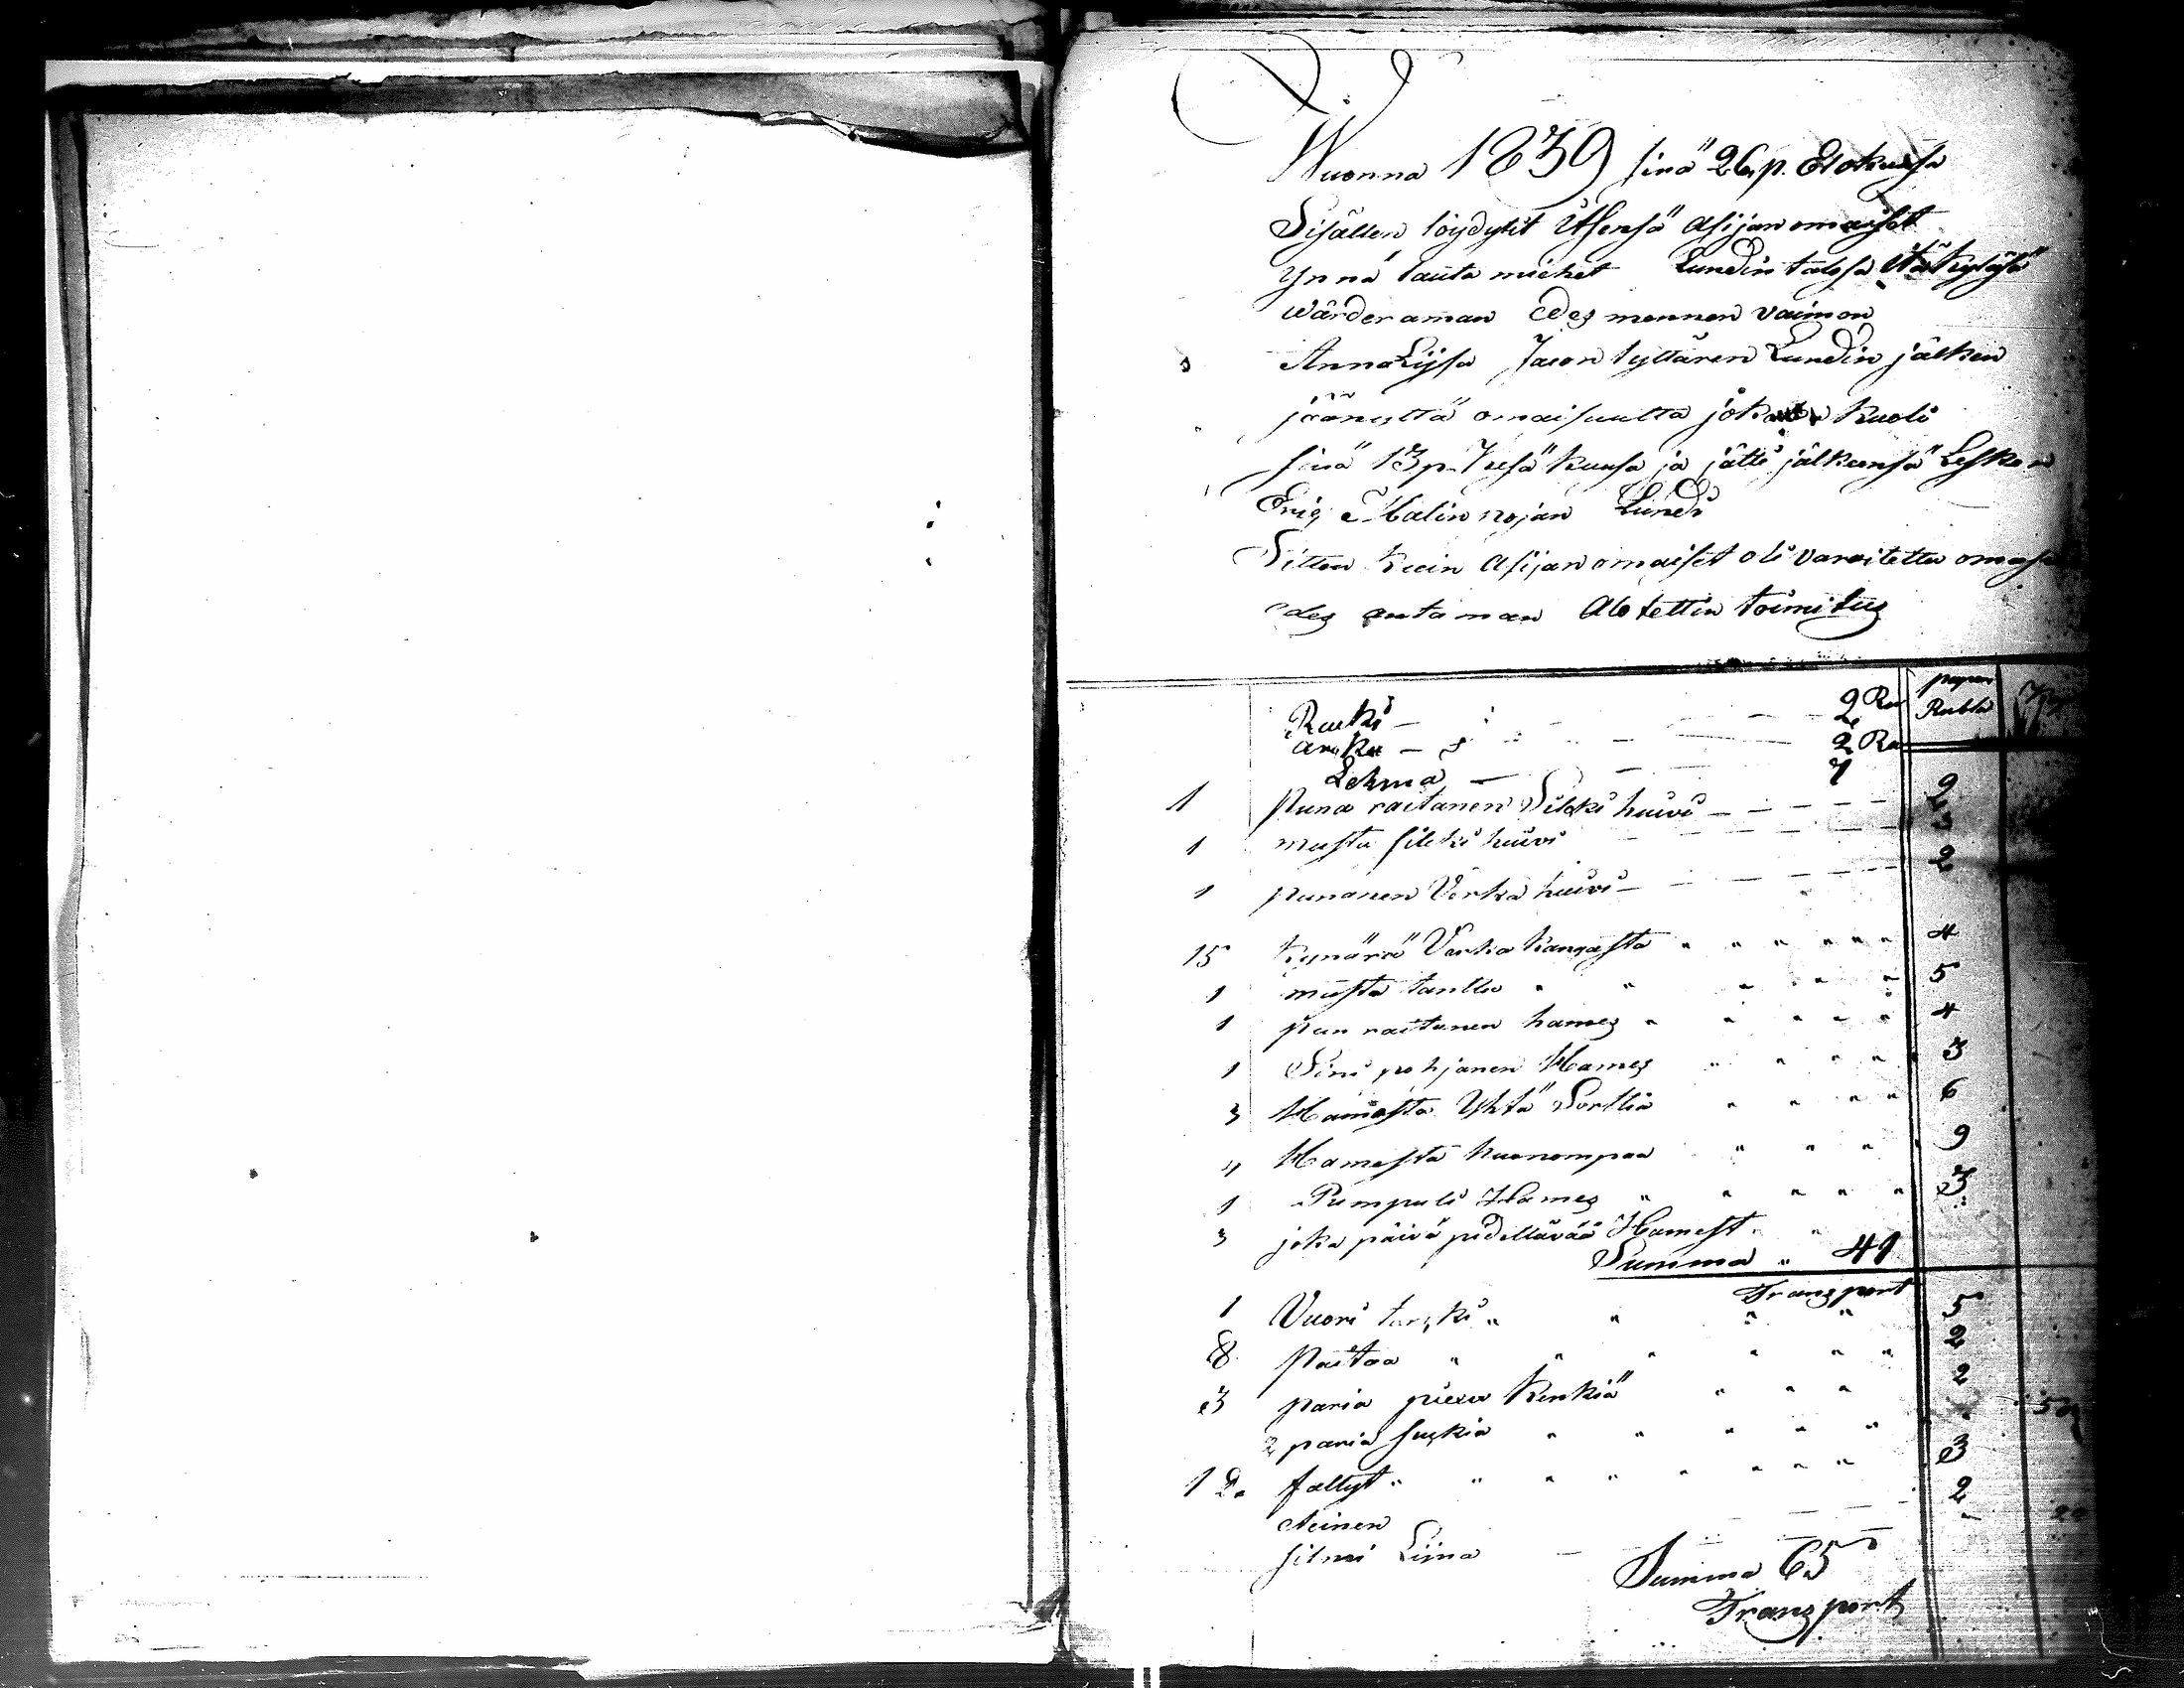 Wuonna 1839 sinä 26 p. Elokuusa
Sisällen löydytit Itsensä Asijanomaiset
Ynnä lauta miehet Lundin talosa Itäkyläsä
wärderaman edes mennen vaimon
Anna Lijsa Jacon tyttären Lundin jälken
jäänyttä omaisuutta joka kuoli
sinä 13 p. Kesä kuusa ja jätti jälkensä Lesken
Eriq Malin pojan Lundi
Sitten kuin Asijanomaiset oli varoitettu omasa
edes antaman Alotettin toimitus
paperi
Rubla Kop
Rucki 2 Ru
arcku 2 Ru
Lehmä 7
1 Puna raitanen Silcki huivi 2
1 musta silcki huivi
1 punanen Verka huivi 2
15 kynärä Verka kangasta 4
1 musta tanttu 5
1 pun raitanen hames 4
1 Sini pohjanen Hames 3
3 Hamesta Yhtä Sorttia 6
4 Hamesta huonompaa 9
1 Pumpuli Hames 3
3 joka päivä pidettävää Hamest
Summa 41
Transport
1 Vuori turcki 5
8 Paitaa 2
3 paria kenkiä 2
2 paria suckia 50
1 fältyt 3
2
silmi Liina 20
Summa 65
Transport